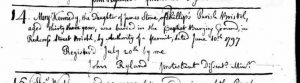 14. Mary Kennedy, the Daughter of James Stone, of Phillip's Parish Bristol,
aged thirty three years, was buried in the Baptist Burying Ground, in
Redcross Street Bristol, by authority of parents, dated June 20th 1797
Registered July 20th by me
John Ryland Protestant Dissent.g Minr.